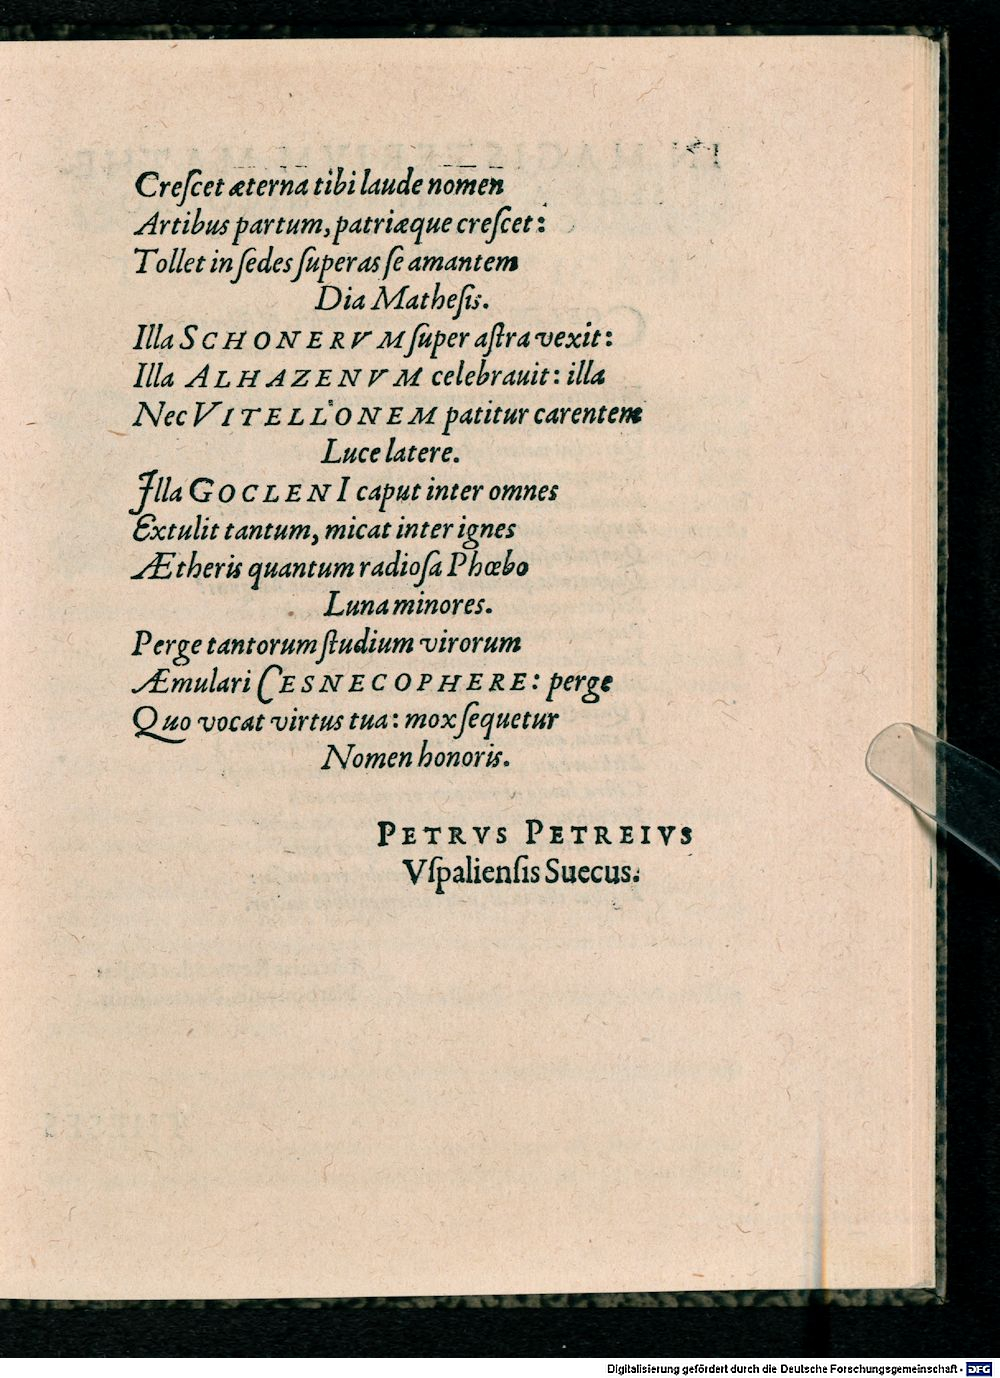 Creſcet æterna tibi laude nomen
Artibus partum, patriæque creſcet:
Tollet in ſedes ſuperas ſe amantem
Dia Matheſis.
Illa SCHONERVM ſuper aſtra vexit:
Illa ALHAZENVM celebrauit: illa
Nec VITELLONEM patitur carentem
Luce latere.
Illa GOCLENI caput inter omnes
Extulit tantum, micat inter ignes
Ætheris quantum radioſa Phœbo
Luna minores.
Perge tantorum ſtudium virorum
Æmulari CESNECOPHERE: perge
Quo vocat virtus tua: mox ſequetur
Nomen honoris.
PETRVS PETREIVS
Vſpalienſis Suecus.
Digitalisierung gefördert durch die Deutsche Forschungsgemeinschaft - DFG